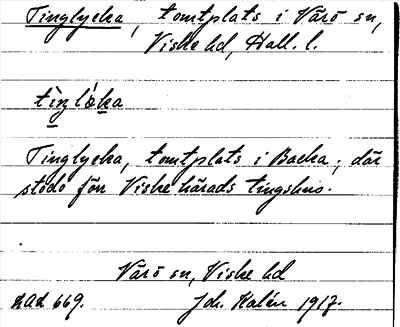 Tinglycka, tomtplats i Värö sn,
Viske hd, Hall. l.
Tinglycka, tomtplats i Backa; där
stodo förr Viske härads tingshus.
Värö sn, Viske hd
669. Joh. Kalén 1917.